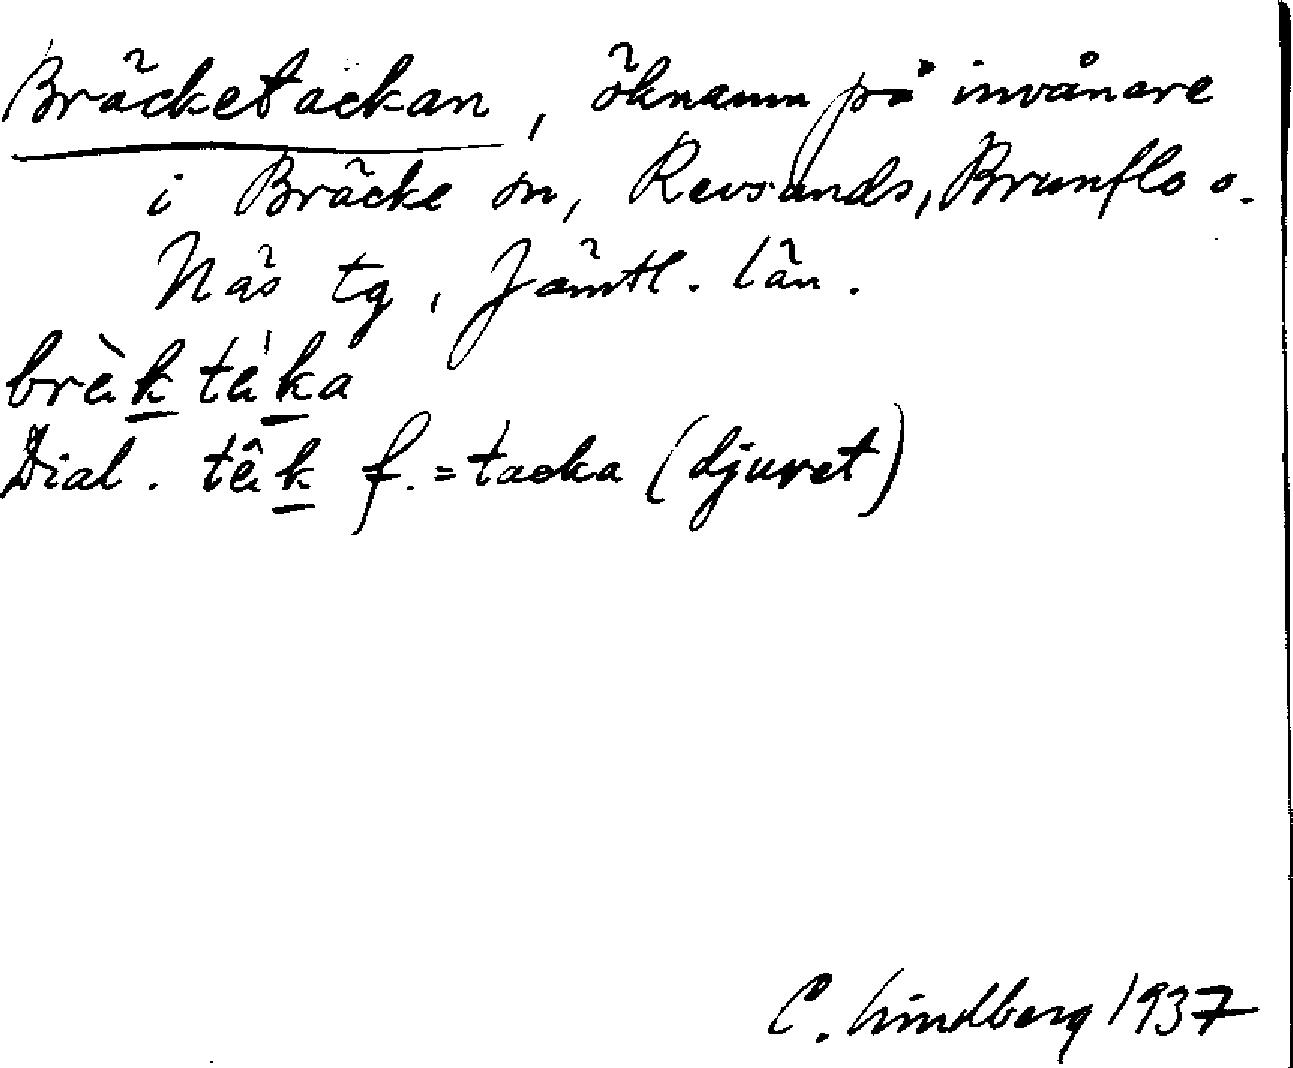 Bräcketackan, öknamn på invånare
i Bräcke sn, Revsunds, Brunflo o.
Näs tg, Jämtl. län.
brèk téka
Dial. têk f. = tacka (djuret)
C. Lindberg 1937